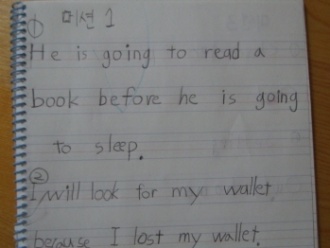 ① 미션 1
He is going to read a
book before he is going
to sleep.
②
I will look for my wallet
because I lost my wallet